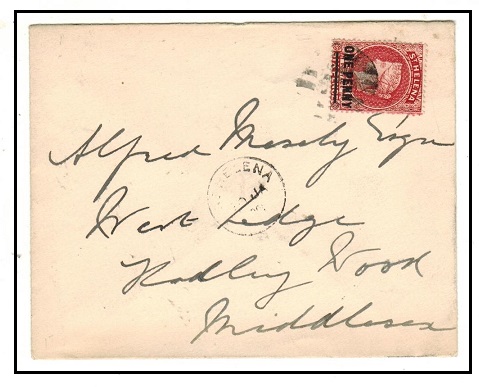 ST HELENA
ONE PENNY
Alfred Mosely Esqre
HELENA
West Lodge
Hadley Wood
Middlesex